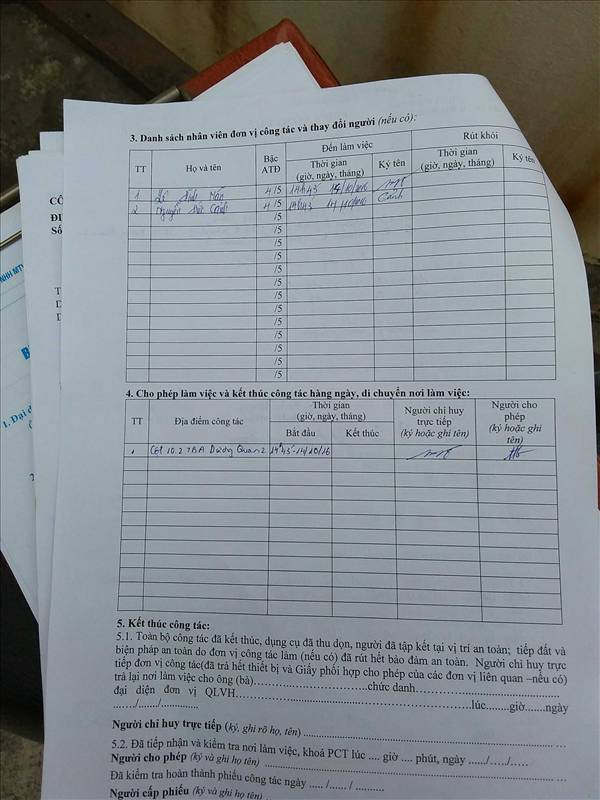 3. Danh sách nhân viên đơn vị công tác và thay đổi người (nếu có):
TT Họ và tên Bậc ATĐ Đến làm việc Rút khỏi
Thời gian (giờ, ngày, tháng) Ký tên Thời gian (giờ, ngày, tháng) Ký tên
1 Lê 4/5 14h43' 14/10/2016
2 Nguyễn 4/5 14h43' 14/10/2016 Cảnh
/5
/5
/5
/5
/5
/5
/5
/5
/5
/5
/5
/5
4. Cho phép làm việc và kết thúc công tác hàng ngày, di chuyển nơi làm việc:
TT Địa điểm công tác Thời gian (giờ, ngày, tháng) Người chỉ huy trực tiếp (ký hoặc ghi tên) Người cho phép (ký hoặc ghi tên)
Bắt đầu Kết thúc
1 Cột 10.2 TBA Dương Quan 2 14h43'-14/10/16
5. Kết thúc công tác:
5.1. Toàn bộ công tác đã kết thúc, dụng cụ đã thu dọn, người đã tập kết tại vị trí an toàn; tiếp đất và
biện pháp an toàn do đơn vị công tác làm (nếu có) đã rút hết bảo đảm an toàn. Người chỉ huy trực
tiếp đơn vị công tác(đã trả hết thiết bị và Giấy phối hợp cho phép của các đơn vị liên quan –nếu có)
trả lại nơi làm việc cho ông (bà)..............................chức danh..............................
đại diện đơn vị QLVH..............................lúc.......giờ......ngày
......./......./..............
Người chỉ huy trực tiếp (ký, ghi rõ họ, tên) ..............................
5.2. Đã tiếp nhận và kiểm tra nơi làm việc, khoá PCT lúc .... giờ .... phút, ngày ...../...../.....
Người cho phép (ký và ghi họ tên) ..............................
Đã kiểm tra hoàn thành phiếu công tác ngày ..... /...... / ..........
Người cấp phiếu (ký và ghi họ tên) ..............................